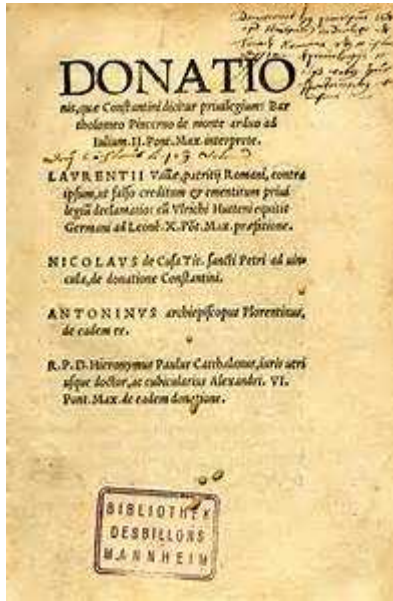 DONATIO
nis, quæ Constantini dicitur priuilegium: Bar
tholomeo Pincerno de monte arduo ad
Iulium. II. Pont. Max. interprete.
LAVRENTII Vallæ, patritij Romani, contra
ipsum, ut falso creditum & ementitum priui
legiũ declamatio: cũ Vlrichi Hutteni equitis
Germani ad Leonẽ. X. Põt. Max. præfatione.
NICOLAVS de Cusa Tit. sancti Petri ad uin
cula, de donatione Constantini.
ANTONINVS archiepiscopus Florentinus,
de eadem re.
R. P. D. Hieronymus Paulus Catthalanus, iuris utri
usque doctor, ac cubicularius Alexandri. VI.
Pont. Max. de eadem donatione.
BIBLIOTHEK
DESBILLONS
MANNHEIM